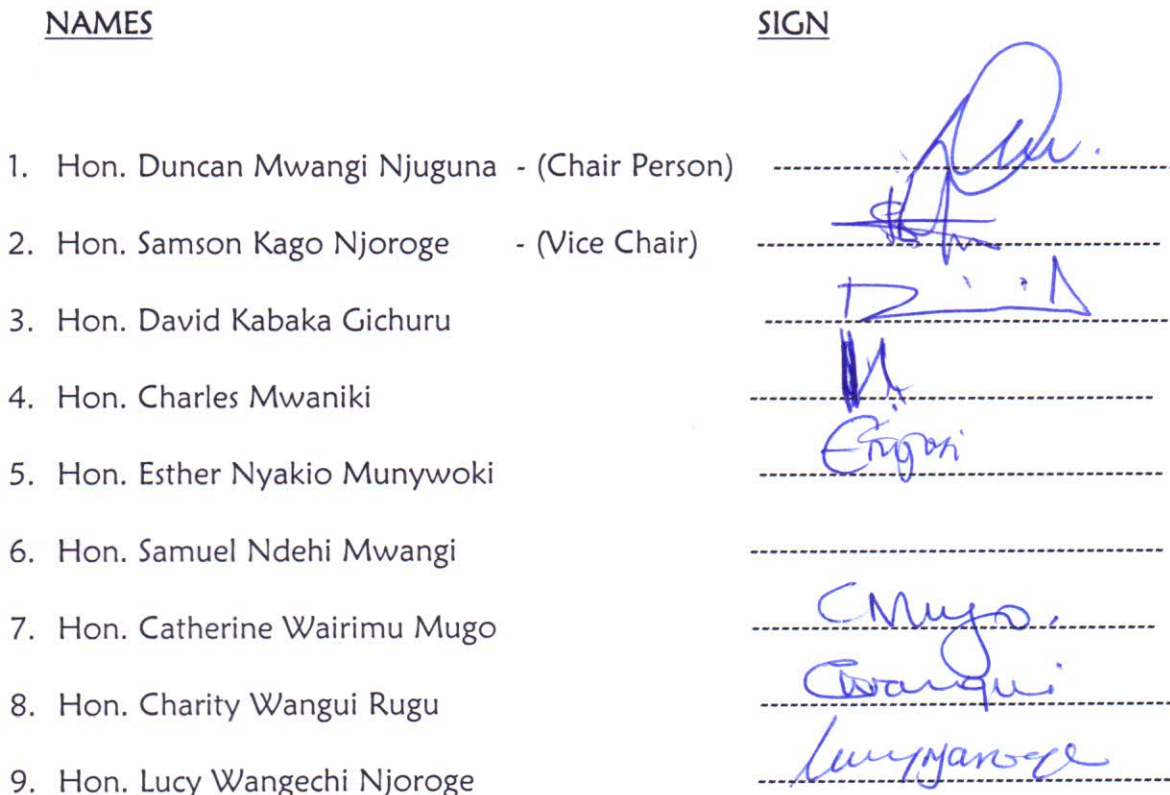 NAMES SIGN
1. Hon. Duncan Mwangi Njuguna - (Chair Person)
2. Hon. Samson Kago Njoroge - (Vice Chair)
3. Hon. David Kabaka Gichuru
4. Hon. Charles Mwaniki
5. Hon. Esther Nyakio Munywoki
6. Hon. Samuel Ndehi Mwangi
7. Hon. Catherine Wairimu Mugo CMugo.
8. Hon. Charity Wangui Rugu
9. Hon. Lucy Wangechi Njoroge